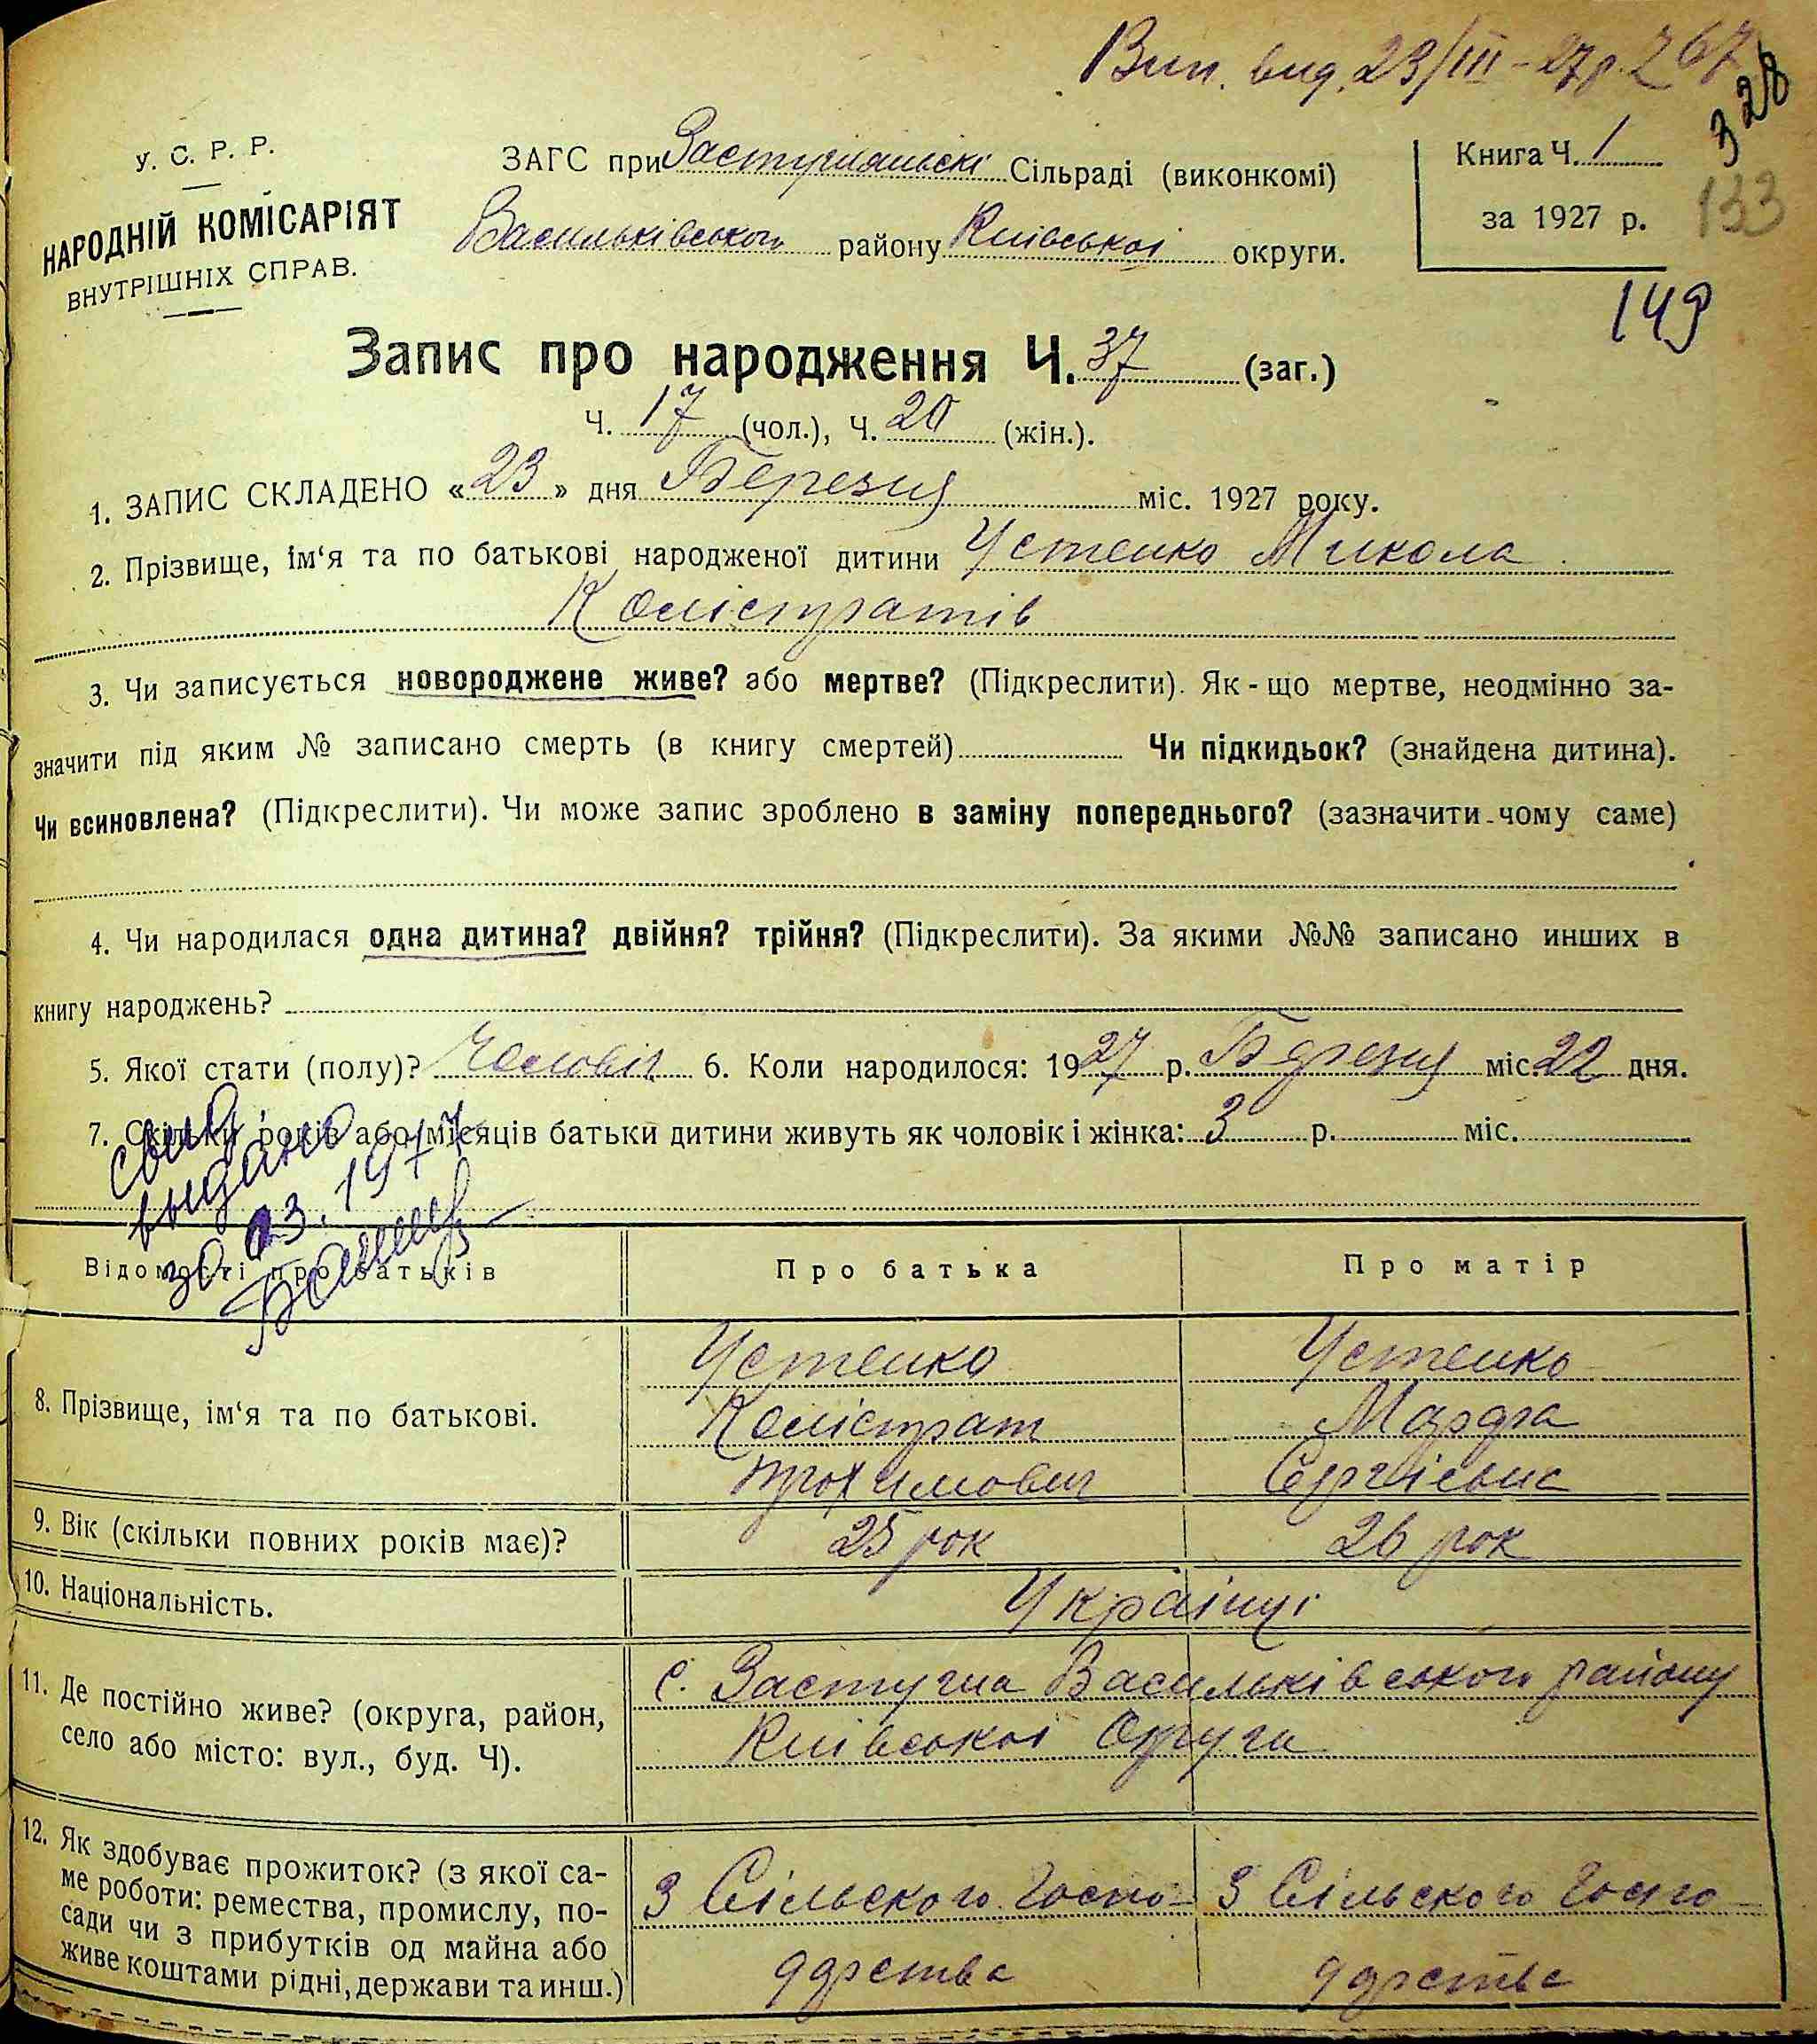 Вип. вид. 23/III-27р. 267
328
У. С. Р. Р.
НАРОДНІЙ КОМІСАРІЯТ
ВНУТРІШНІХ СПРАВ.
ЗАГС при Застугнянські Сільраді (виконкомі)
Васильківського району Київськоі округи.
Книга Ч. 1
за 1927 р.
133
149
Запис про народження Ч. 37 (заг.)
Ч. 17 (чол.), Ч. 20 (жін.).
1. ЗАПИС СКЛАДЕНО «23» дня Березня міс. 1927 року.
2. Прізвище, ім‘я та по батькові народженої дитини Устенко Микола
Колістратів
3. Чи записується новороджене живе? або мертве? (Підкреслити). Як-що мертве, неодмінно за-
значити під яким № записано смерть (в книгу смертей) Чи підкидьок? (знайдена дитина).
Чи всиновлена? (Підкреслити). Чи може запис зроблено в заміну попереднього? (зазначити чому саме)
4. Чи народилася одна дитина? двійня? трійня? (Підкреслити). За якими №№ записано инших в
книгу народжень?
5. Якої стати (полу)? Чоловік 6. Коли народилося: 1927 р. Березня міс. 22 дня.
7. Скільки років або місяців батьки дитини живуть як чоловік і жінка: 3 р. міс.
выдано
30.03.1977
Відомості про батьків
Про батька
Про матір
8. Прізвище, ім‘я та по батькові.
Устенко
Колістрат
Трохимович
Устенко
Марфа
Сергієвна
9. Вік (скільки повних років має)?
25 рок
26 рок
10. Національність.
Украінці
11. Де постійно живе? (округа, район,
село або місто: вул., буд. Ч).
с. Застугна Васильківського району
Київськоі Округи
12. Як здобуває прожиток? (з якої са-
ме роботи: ремества, промислу, по-
сади чи з прибутків од майна або
живе коштами рідні, держави та инш.)
З Сільского Госпо-
дарства
З Сільского Госпо-
дарства